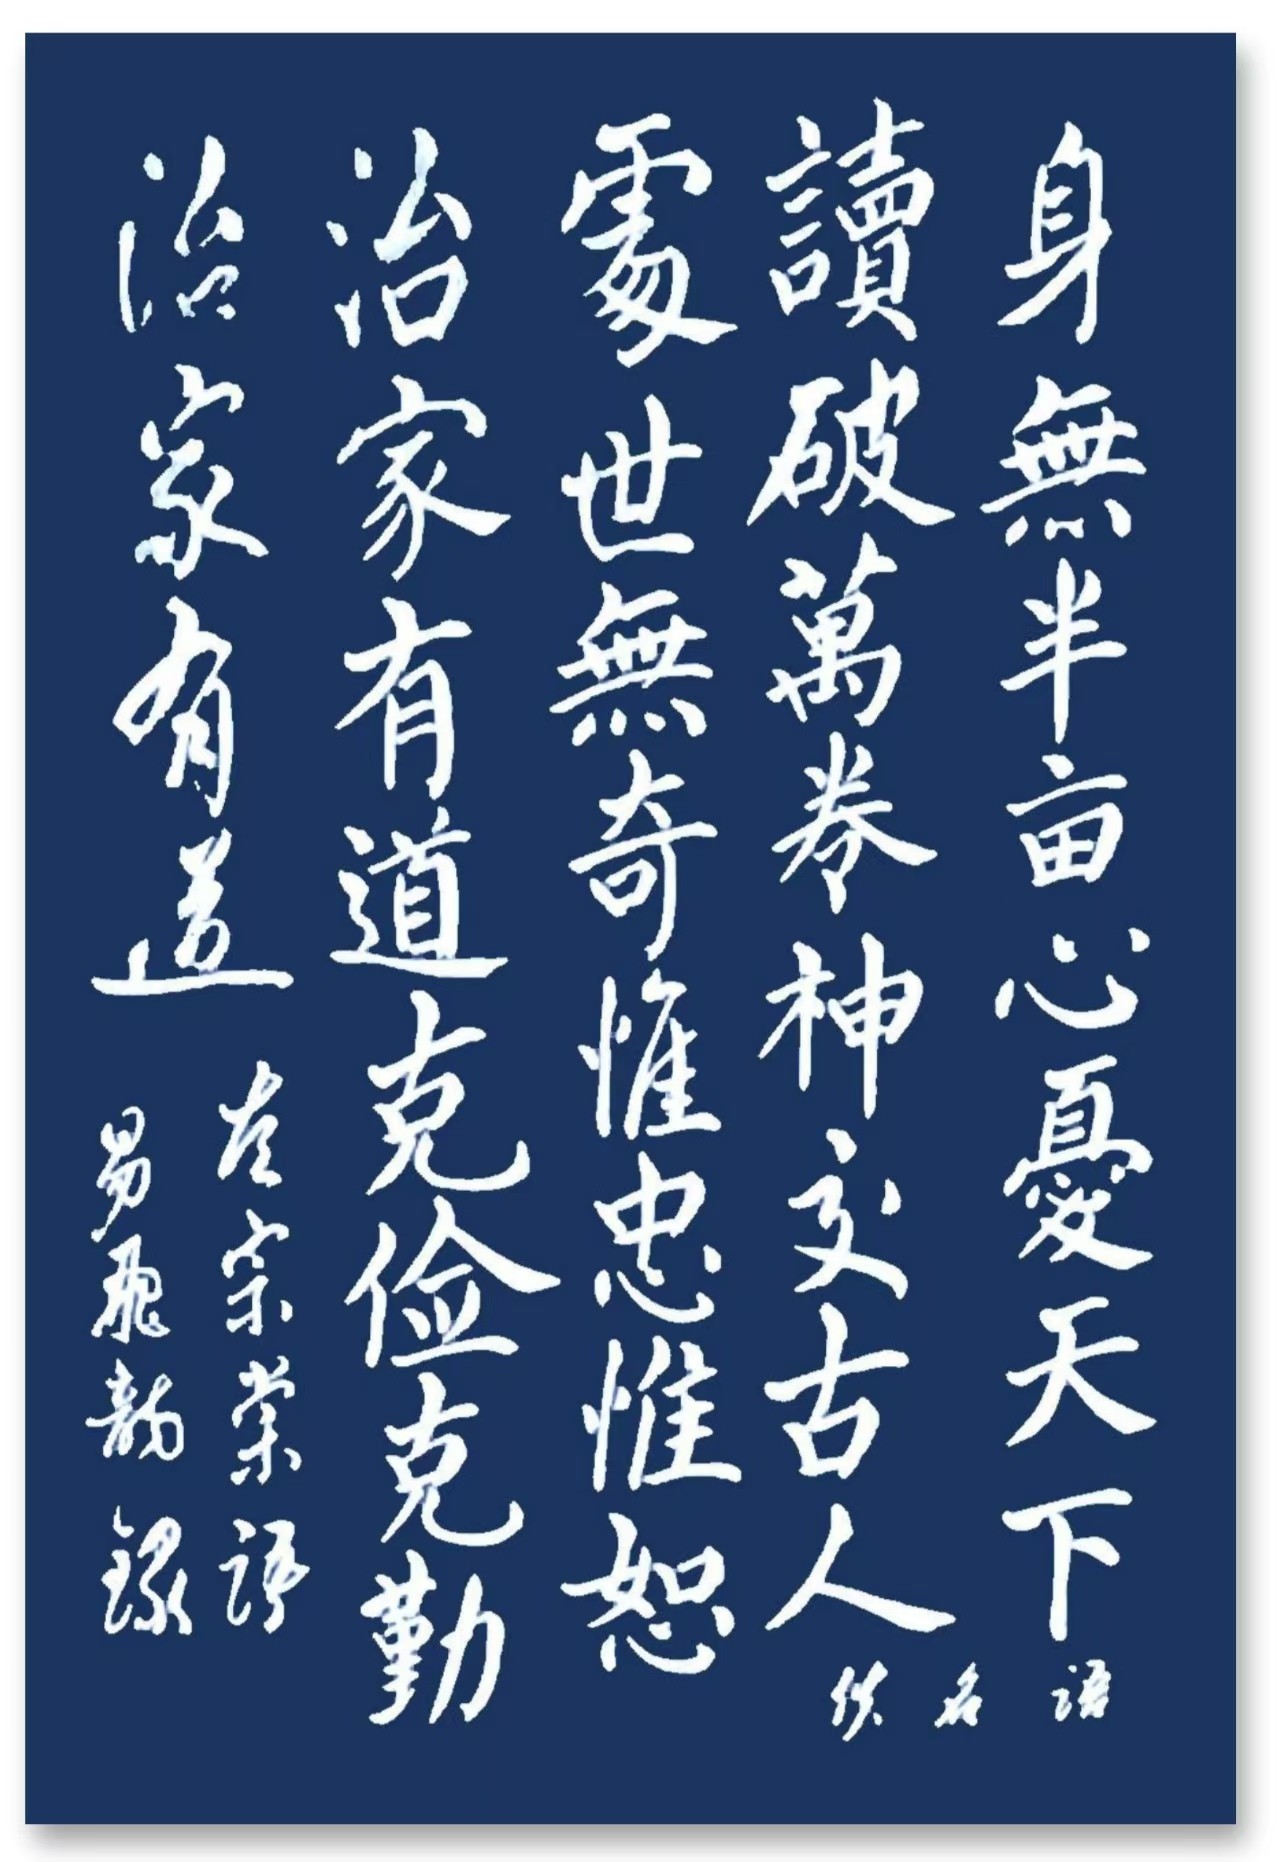 身無半亩心憂天下
讀破萬卷神交古人
語名佚
處世無奇惟忠惟恕
治家有道克俭克勤
治家有道
左宗棠語
易飛韵録